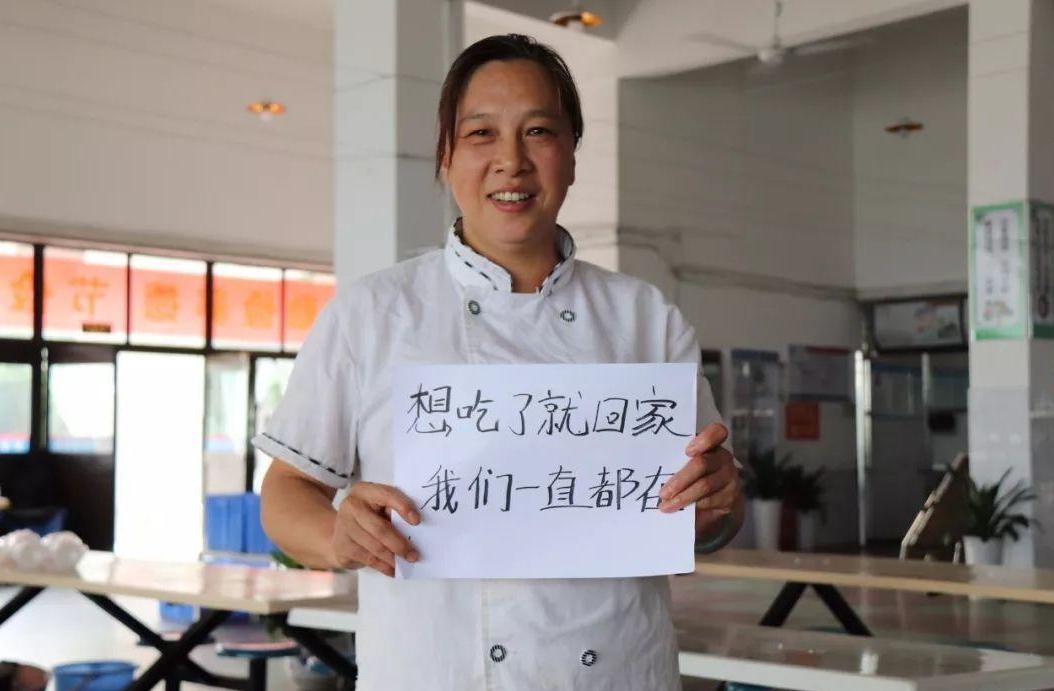 想吃了就回家
我们一直都在